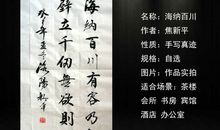 海纳百川有容乃
立千仞无欲则
名称：海纳百川
作者：焦新平
性质：手写真迹
规格：自选
图片：作品实拍
适合场景：茶楼
会所 书房 宾馆
酒店 办公室